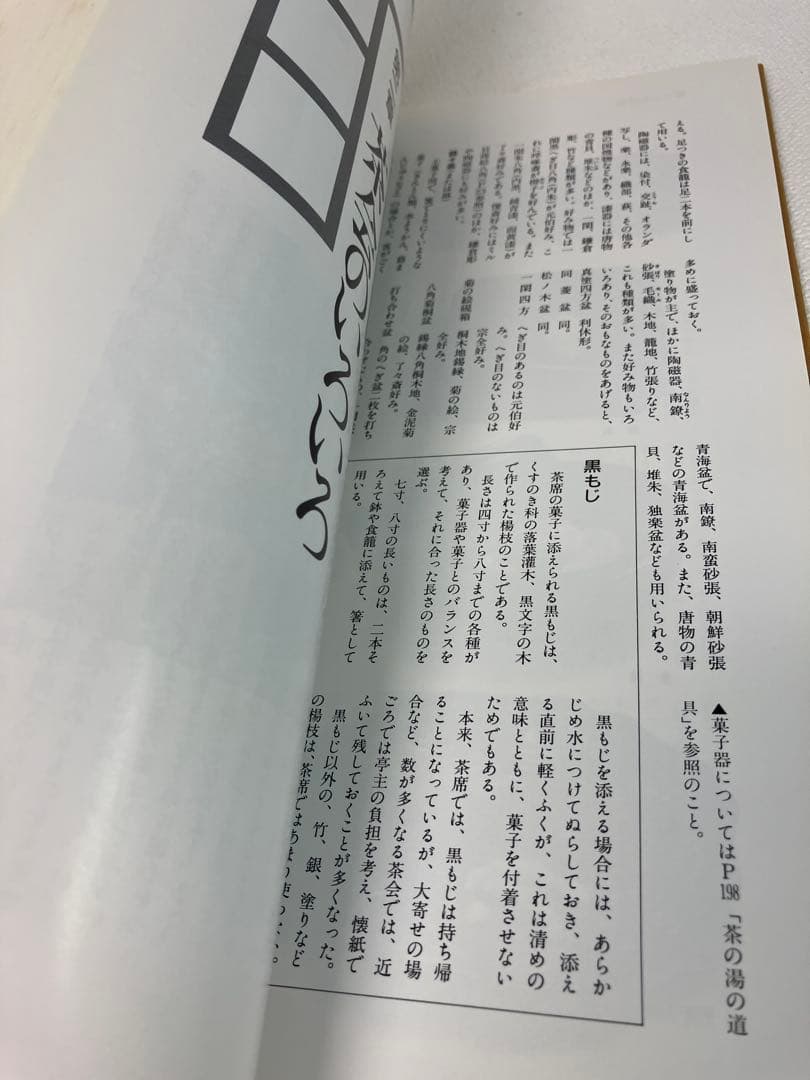 える。足つきの食籠は足二本を前にし
て用いる。
陶磁器には、染付、交趾、オランダ
写し、楽、永楽、織部、萩、その他各
種の国焼物などがあり、漆器には唐物
の青貝、堆朱などのほか、一閑、鎌倉
彫、竹など種類が多い。好み物では一
多めに盛っておく。
塗り物が主で、ほかに陶磁器、南鐐、
砂張、毛織、木地、籠地、竹張りなど、
これも種類が多い。また好み物もいろ
いろあり、そのおもなものをあげると、
真塗四方盆 利休形。
同 菱盆 同。
松ノ木盆 同。
一閑四方 へぎ目のあるのは元伯好
み。へぎ目のないものは
宗全好み。
菊の絵硯箱 桐木地錫縁、菊の絵、宗
全好み。
八角菊桐盆 錫縁八角桐木地、金泥菊
の絵、了々斎好み。
打ち合わせ盆 角のへぎ盆二枚を打ち
青海盆で、南鐐、南蛮砂張、朝鮮砂張
などの青海盆がある。また、唐物の青
貝、堆朱、独楽盆なども用いられる。
▲菓子器についてはP198「茶の湯の道
具」を参照のこと。
黒もじ
茶席の菓子に添えられる黒もじは、
くすのき科の落葉灌木、黒文字の木
で作られた楊枝のことである。
長さは四寸から八寸までの各種が
あり、菓子器や菓子とのバランスを
考えて、それに合った長さのものを
選ぶ。
七寸、八寸の長いものは、二本そ
ろえて鉢や食籠に添えて、箸として
用いる。
黒もじを添える場合には、あらか
じめ水につけてぬらしておき、添え
る直前に軽くふくが、これは清めの
意味とともに、菓子を付着させない
ためでもある。
本来、茶席では、黒もじは持ち帰
ることになっているが、大寄せの場
合など、数が多くなる茶会では、近
ごろでは亭主の負担を考え、懐紙で
ふいて残しておくことが多くなった。
黒もじ以外の、竹、銀、塗りなど
の楊枝は、茶席ではあまり使わない。
のいろいろ